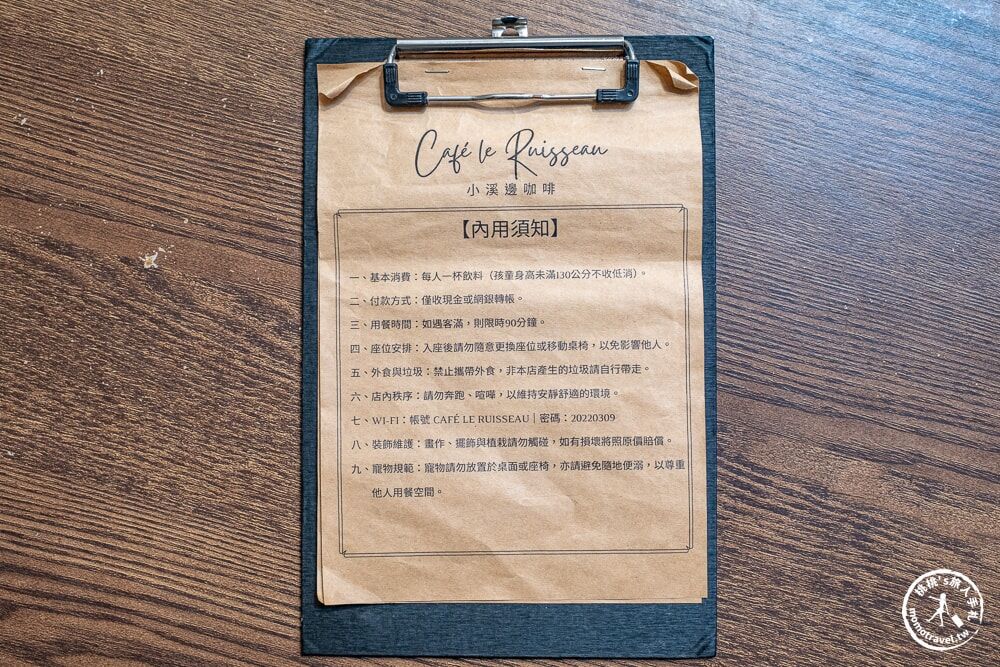 Café le Ruisseau
小溪邊咖啡
【內用須知】
一、基本消費：每人一杯飲料（孩童身高未滿130公分不收低消）。
二、付款方式：僅收現金或網銀轉帳。
三、用餐時間：如遇客滿，則限時90分鐘。
四、座位安排：入座後請勿隨意更換座位或移動桌椅，以免影響他人。
五、外食與垃圾：禁止攜帶外食，非本店產生的垃圾請自行帶走。
六、店內秩序：請勿奔跑、喧嘩，以維持安靜舒適的環境。
七、WI-FI：帳號 CAFÉ LE RUISSEAU｜密碼：20220309
八、裝飾維護：畫作、擺飾與植栽請勿觸碰，如有損壞將照原價賠償。
九、寵物規範：寵物請勿放置於桌面或座椅，亦請避免隨地便溺，以尊重
他人用餐空間。
桃桃's旅人手札
momotravel.tw